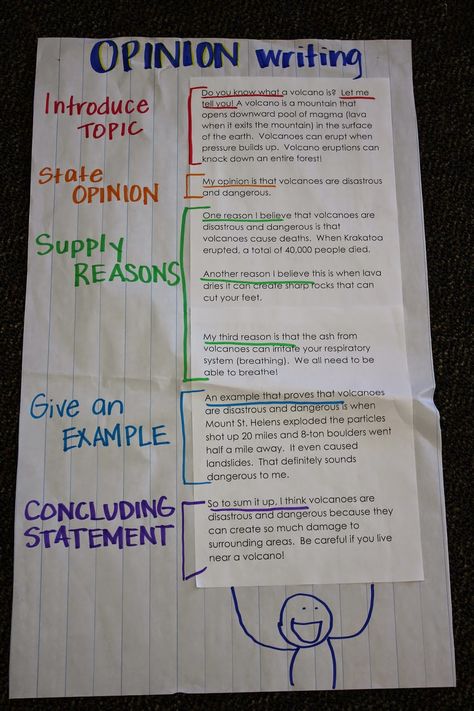 OPINION writing
Introduce
TOPIC
Do you know what a volcano is? Let me
tell you! A volcano is a mountain that
opens downward pool of magma (lava
when it exits the mountain) in the surface
of the earth. Volcanoes can erupt when
pressure builds up. Volcano eruptions can
knock down an entire forest!
State
OPINION
My opinion is that volcanoes are disastrous
and dangerous.
Supply
REASONS
One reason I believe that volcanoes are
disastrous and dangerous is that
volcanoes cause deaths. When Krakatoa
erupted, a total of 40,000 people died.
Another reason I believe this is when lava
dries it can create sharp rocks that can
cut your feet.
My third reason is that the ash from
volcanoes can irritate your respiratory
system (breathing). We all need to be
able to breathe!
Give an
EXAMPLE
An example that proves that volcanoes
are disastrous and dangerous is when
Mount St. Helens exploded the particles
shot up 20 miles and 8-ton boulders went
half a mile away. It even caused
landslides. That definitely sounds
dangerous to me.
CONCLUDING
STATEMENT
So to sum it up, I think volcanoes are
disastrous and dangerous because they
can create so much damage to
surrounding areas. Be careful if you live
near a volcano!